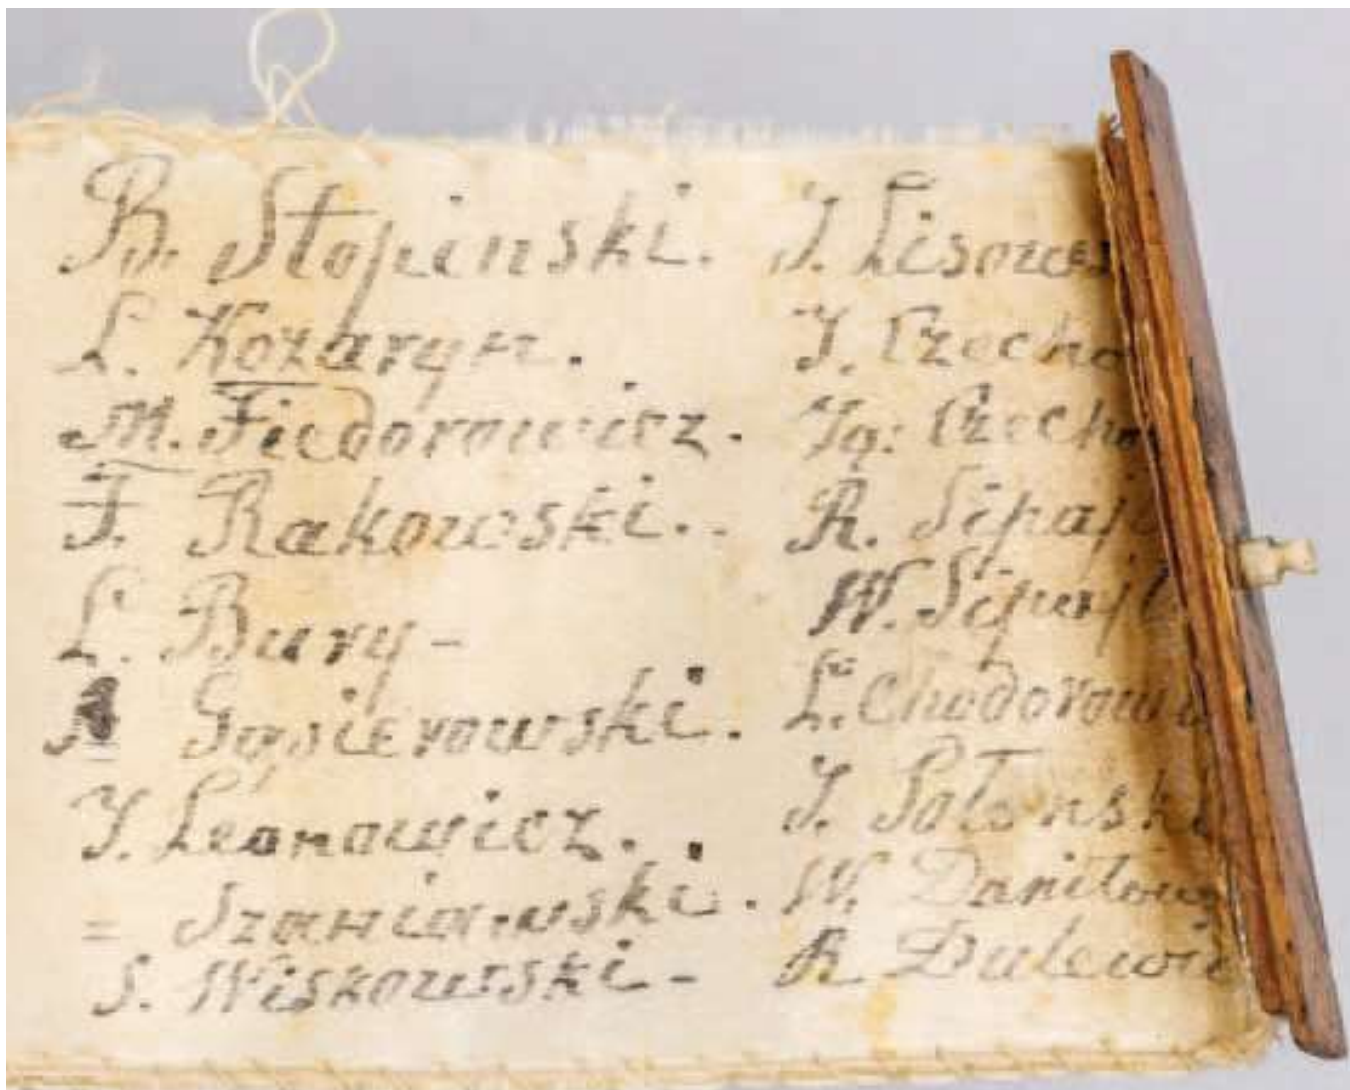 B. Stopinski.
L. Kozaryn.
M. Fiedorowicz.
F. Rakowski..
L. Bury-
Gąsierowski.
J. Leonowicz..
= Szaniawski.
S. Wiskowski-
J. Lisows
J. Czecho
Ig: Czecho
R. Sipaj
W. Sipajł
L. Chodorow
J. Połonski
W. Daniłow
R. Dulewic